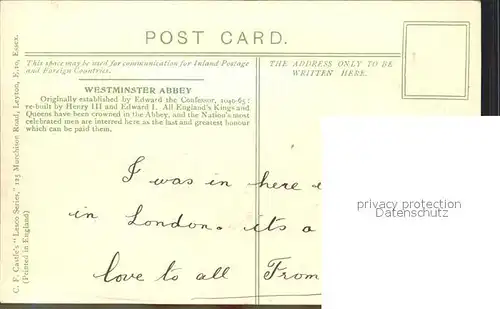 POST CARD.
This space may be used for communication for Inland Postage
and Foreign Countries.
THE ADDRESS ONLY TO BE
WRITTEN HERE.
WESTMINSTER ABBEY
Originally established by Edward the Confessor, 1040-65:
re-built by Henry III and Edward I. All England's Kings and
Queens have been crowned in the Abbey, and the Nation's most
celebrated men are interred here as the last and greatest honour
which can be paid them.
C. F. Castle's "Lesco Series," 125 Murchison Road, Leyton, E.10, Essex.
(Printed in England)
I was in here
in London. its a
love to all From
privacy protection
Datenschutz